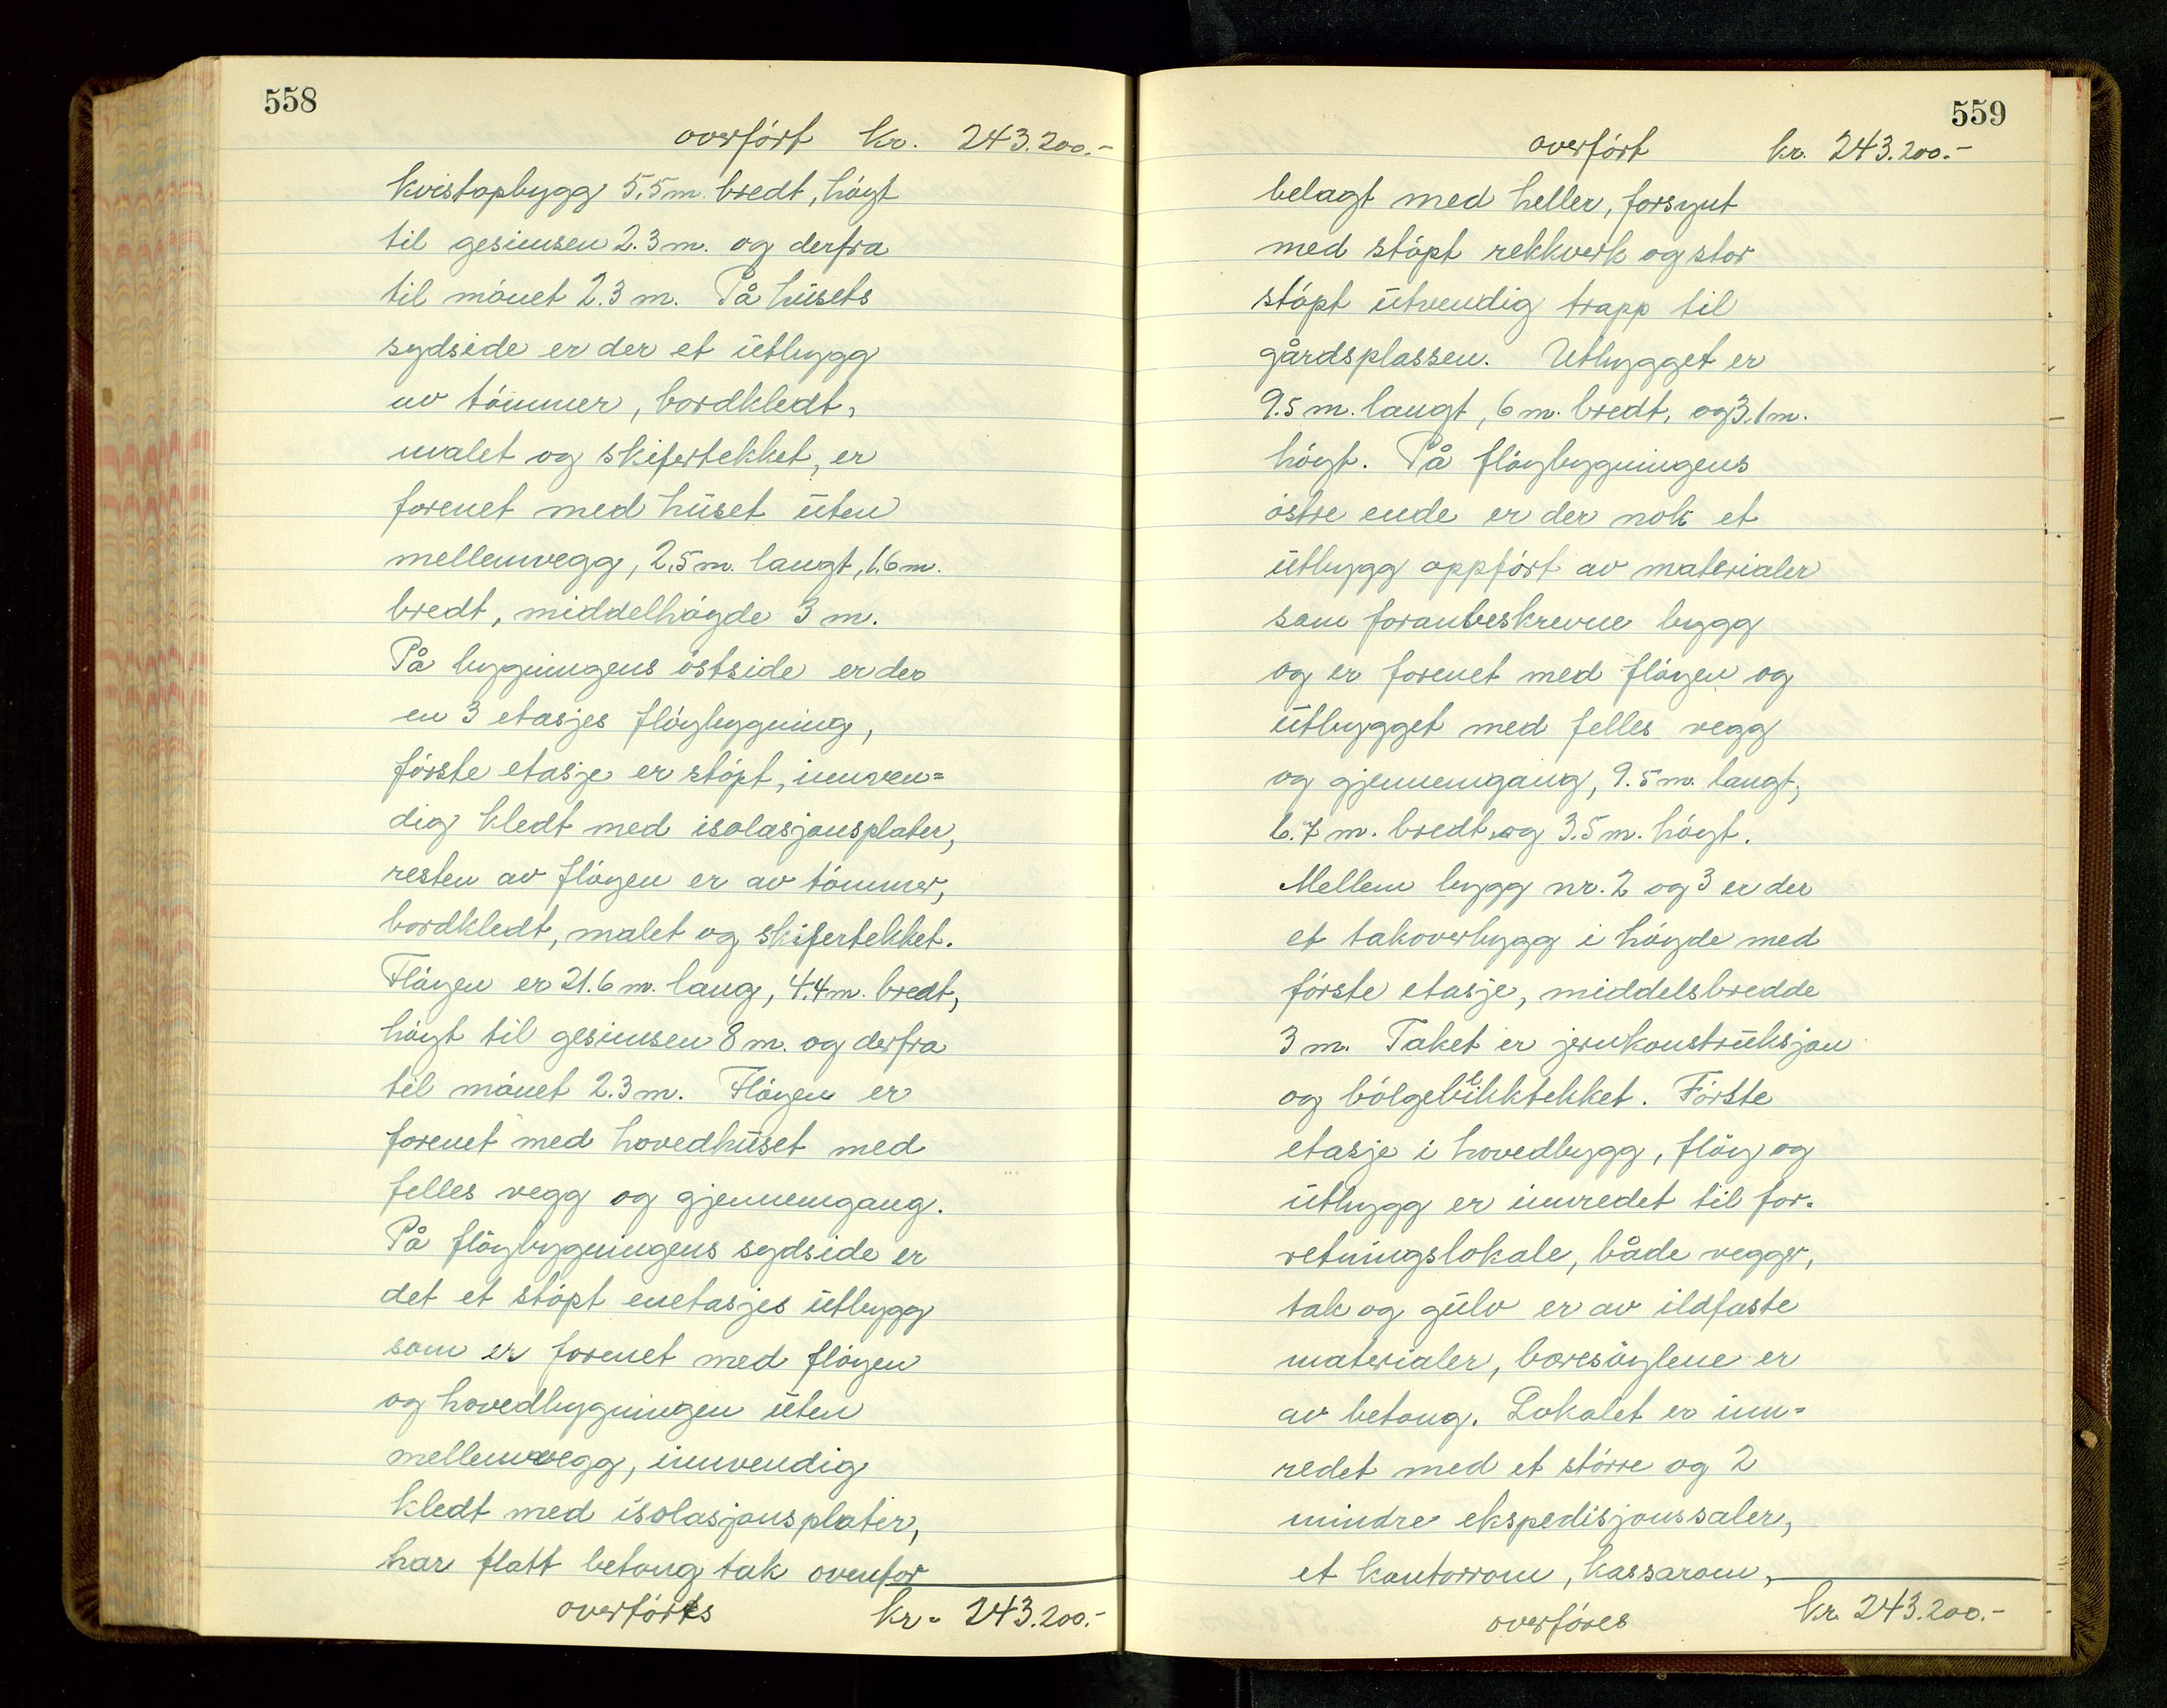 558
overført kr. 243.200.-
kvistopbygg 5,5 m. bredt, høgt
til gesimsen 2.3 m. og derfra
til mönet 2.3 m. På husets
sydside er der et utbygg
av tömmer, bordkledt,
malet og skifertekket, er
forenet med huset uten
mellemvegg, 2,5 m. langt, 1.6 m.
bredt, middelhøgde 3 m.
På bygningens östside er der
en 3 etasjes flöybygning,
förste etasje er støpt, innven=
dig kledt med isolasjonsplater,
resten av flöyen er av tömmer,
bordkledt, malet og skifertekket.
Flöyen er 21.6 m. lang, 4.4 m. bredt,
höyt til gesimsen 8 m. og derfra
til mönet 2.3 m. Flöyen er
forenet med hovedhuset med
felles vegg og gjennemgang.
På flöybygningens sydside er
det et støpt enetasjes utbygg
som er forenet med flöyen
og hovedbygningen uten
mellemvegg, innvendig
kledt med isolasjonsplater,
har flatt betong tak ovenfor
overföres kr. 243.200.-
559
overført kr. 243.200.-
belagt med heller, forsynt
med støpt rekkverk og stor
støpt utvendig trapp til
gårdsplassen. Utbygget er
9.5 m. langt, 6 m. bredt, og 3.1 m.
höyt. På flöybygningens
östre ende er der nok et
utbygg oppført av materialer
som foranbeskrevne bygg
og er forenet med flöyen og
utbygget med felles vegg
og gjennemgang, 9.5 m. langt,
6.7 m. bredt og 3.5 m. höyt.
Mellem bygg nr. 2 og 3 er der
et takoverbygg i höyde med
förste etasje, middelsbredde
3 m. Taket er jernkonstruksjon
og bölgeblikktekket. Förste
etasje i hovedbygg, flöy og
utbygg er innredet til for-
retningslokale, både vegger,
tak og gulv er av ildfaste
materialer, boresöylene er
av betong. Lokalet er inn=
redet med et större og 2
mindre ekspedisjonssaler,
et kontorrom, kassarom,
overföres kr. 243.200.-